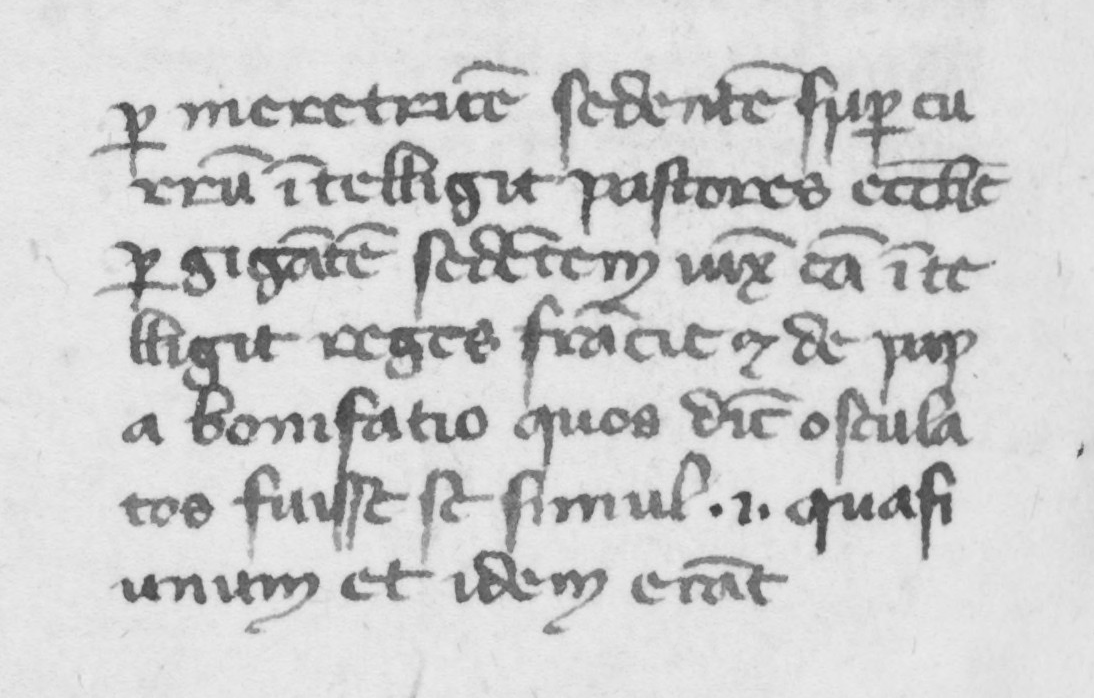 ꝑ meretricē sedentē suꝑ cu
rrū ītelligit pastores eccłie
ꝑ gigātē sedētem iuxͣ eā īte
lligit reges frācie ⁊ de pap
a bonifatio quos dic̄ oscula
tos fuisse se simul .i. quasi
unum et idem erāt